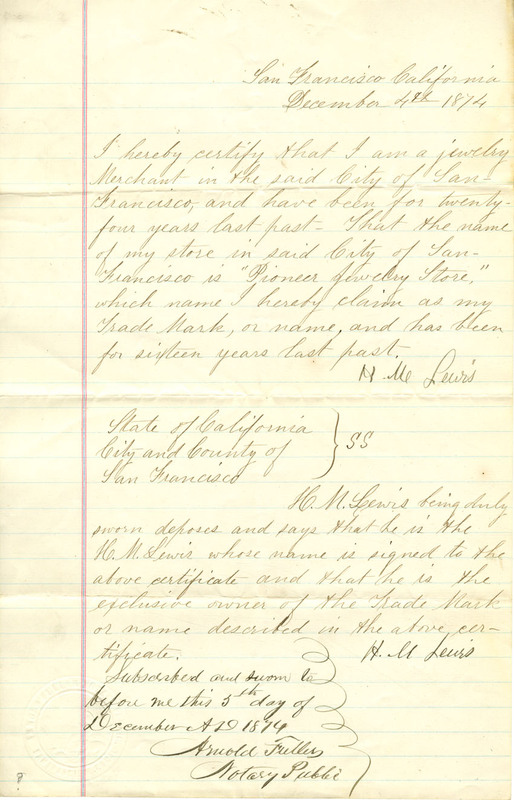 San Francisco California
December 4th 1874
I hereby certify that I am a jewelry
Merchant in the said City of San-
Francisco, and have been for twenty-
four years last past - That the name
of my store in said City of San-
Francisco is "Pioneer Jewelry Store,"
which name I hereby claim as my
Trade Mark, or name, and has been
for sixteen years last past.
H. M. Lewis
State of California
City and County of } SS
San Francisco
H. M. Lewis being duly
sworn deposes and says that he is the
H. M. Lewis whose name is signed to the
above certificate and that he is the
exclusive owner of the Trade Mark
or name described in the above cer-
tificate.
H. M Lewis
Subscribed and sworn to
before me this 5th day of
December AD 1874
Arnold Fuller
Notary Public
8